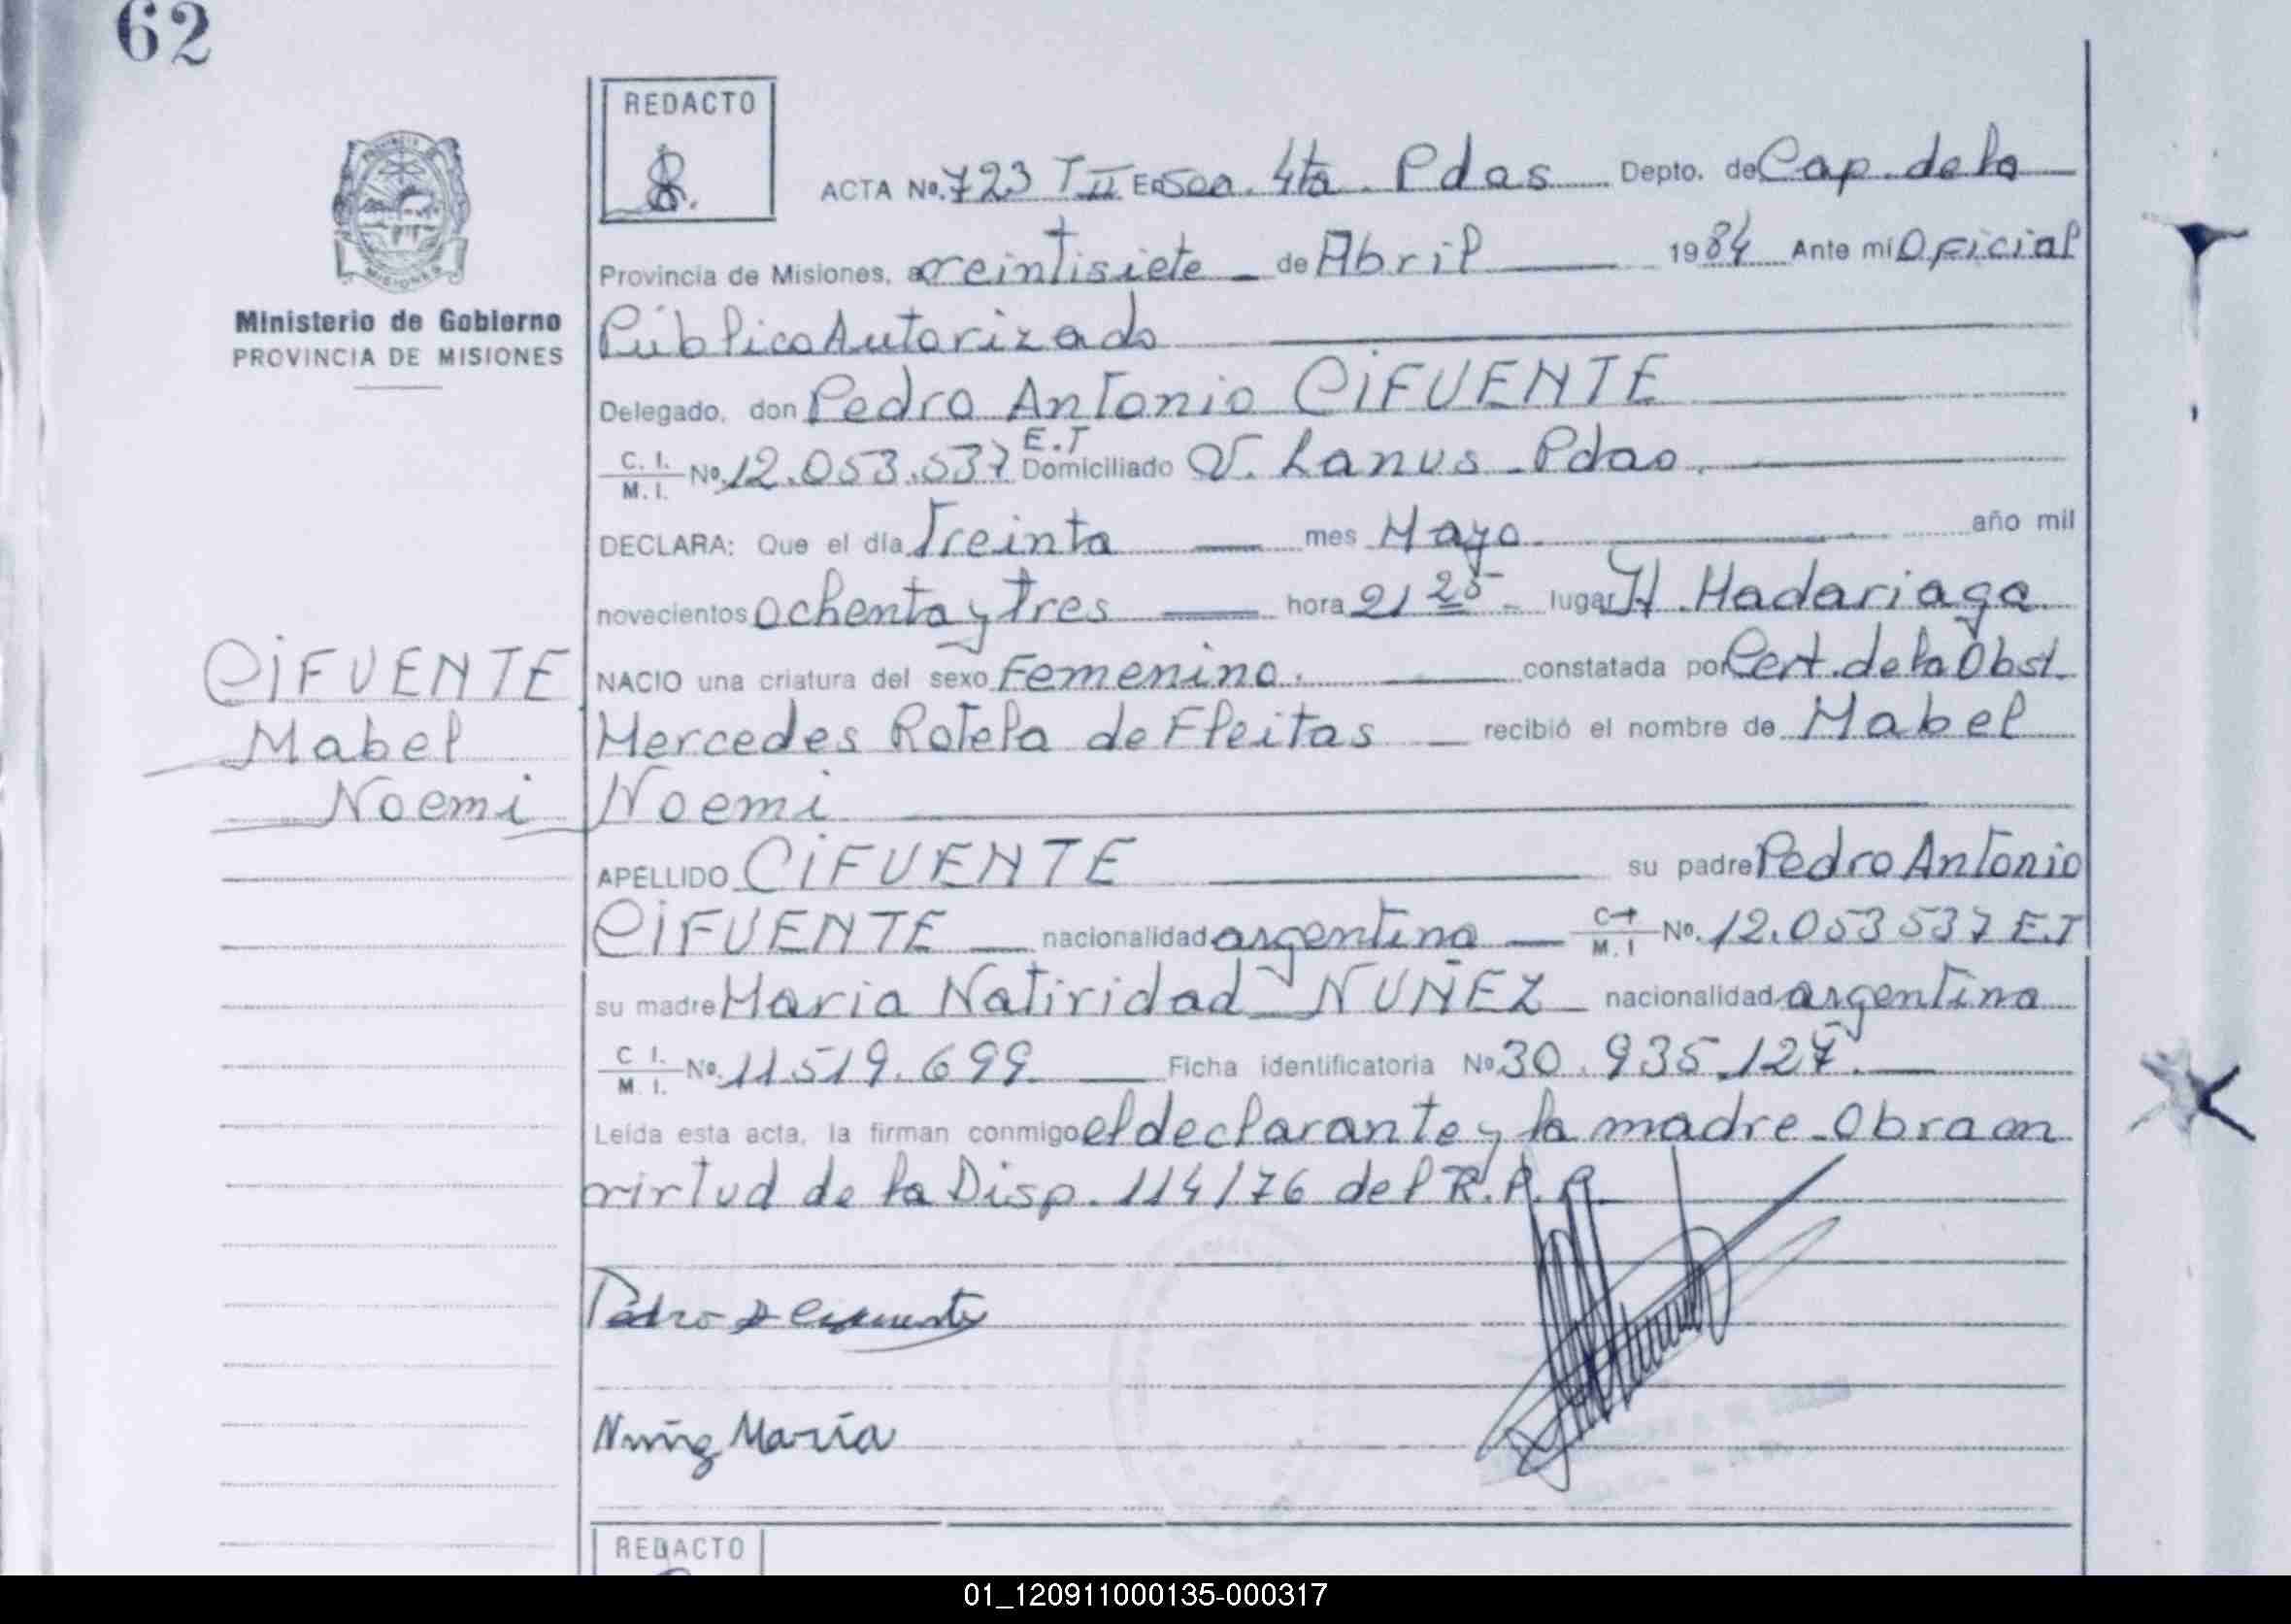 62
REDACTO
ACTA No. 723 T II En Sec. 4ta. Pdas Depto. de Cap. de la
Provincia de Misiones, a veintisiete de Abril 1984 Ante mi Oficial
Público Autorizado
Ministerio de Gobierno
PROVINCIA DE MISIONES
Delegado, don Pedro Antonio CIFUENTE
C. I. M. I. No. 12.053.537 E.T Domiciliado V. Lanus - Pdas.
DECLARA: Que el día Treinta mes Mayo año mil
novecientos ochenta y tres hora 21 25 lugar H. Madariaga
CIFUENTE NACIO una criatura del sexo Femenino. constatada por Cert. de la Obst.
Mabel Mercedes Rotela de Fleitas recibió el nombre de Mabel
Noemi Noemi
APELLIDO CIFUENTE su padre Pedro Antonio
CIFUENTE nacionalidad argentina M. I No. 12.053537 E.T
su madre Maria Natividad NUÑEZ nacionalidad argentina
C I. M. I. No. 11.519.699 Ficha identificatoria No 30.935.127.
Leída esta acta, la firman conmigo el declarante y la madre. Obra en
virtud de la Disp. 114/76 del R.P.P.
Pedro A Cifuente
Nuñez María
REDACTO
01_120911000135-000317